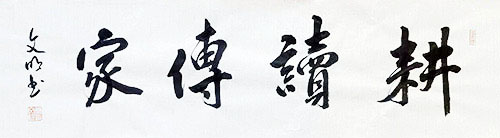 耕讀傳家
文明書